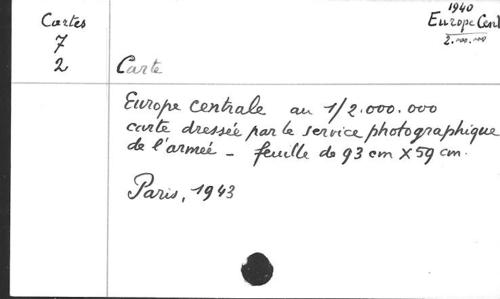 Cartes
7
2
1940
Europe Cent
2.000.000
Carte
Europe centrale au 1/2.000.000
carte dressée par le service photographique
de l'armée - feuille de 93 cm X 59 cm.
Paris, 1943